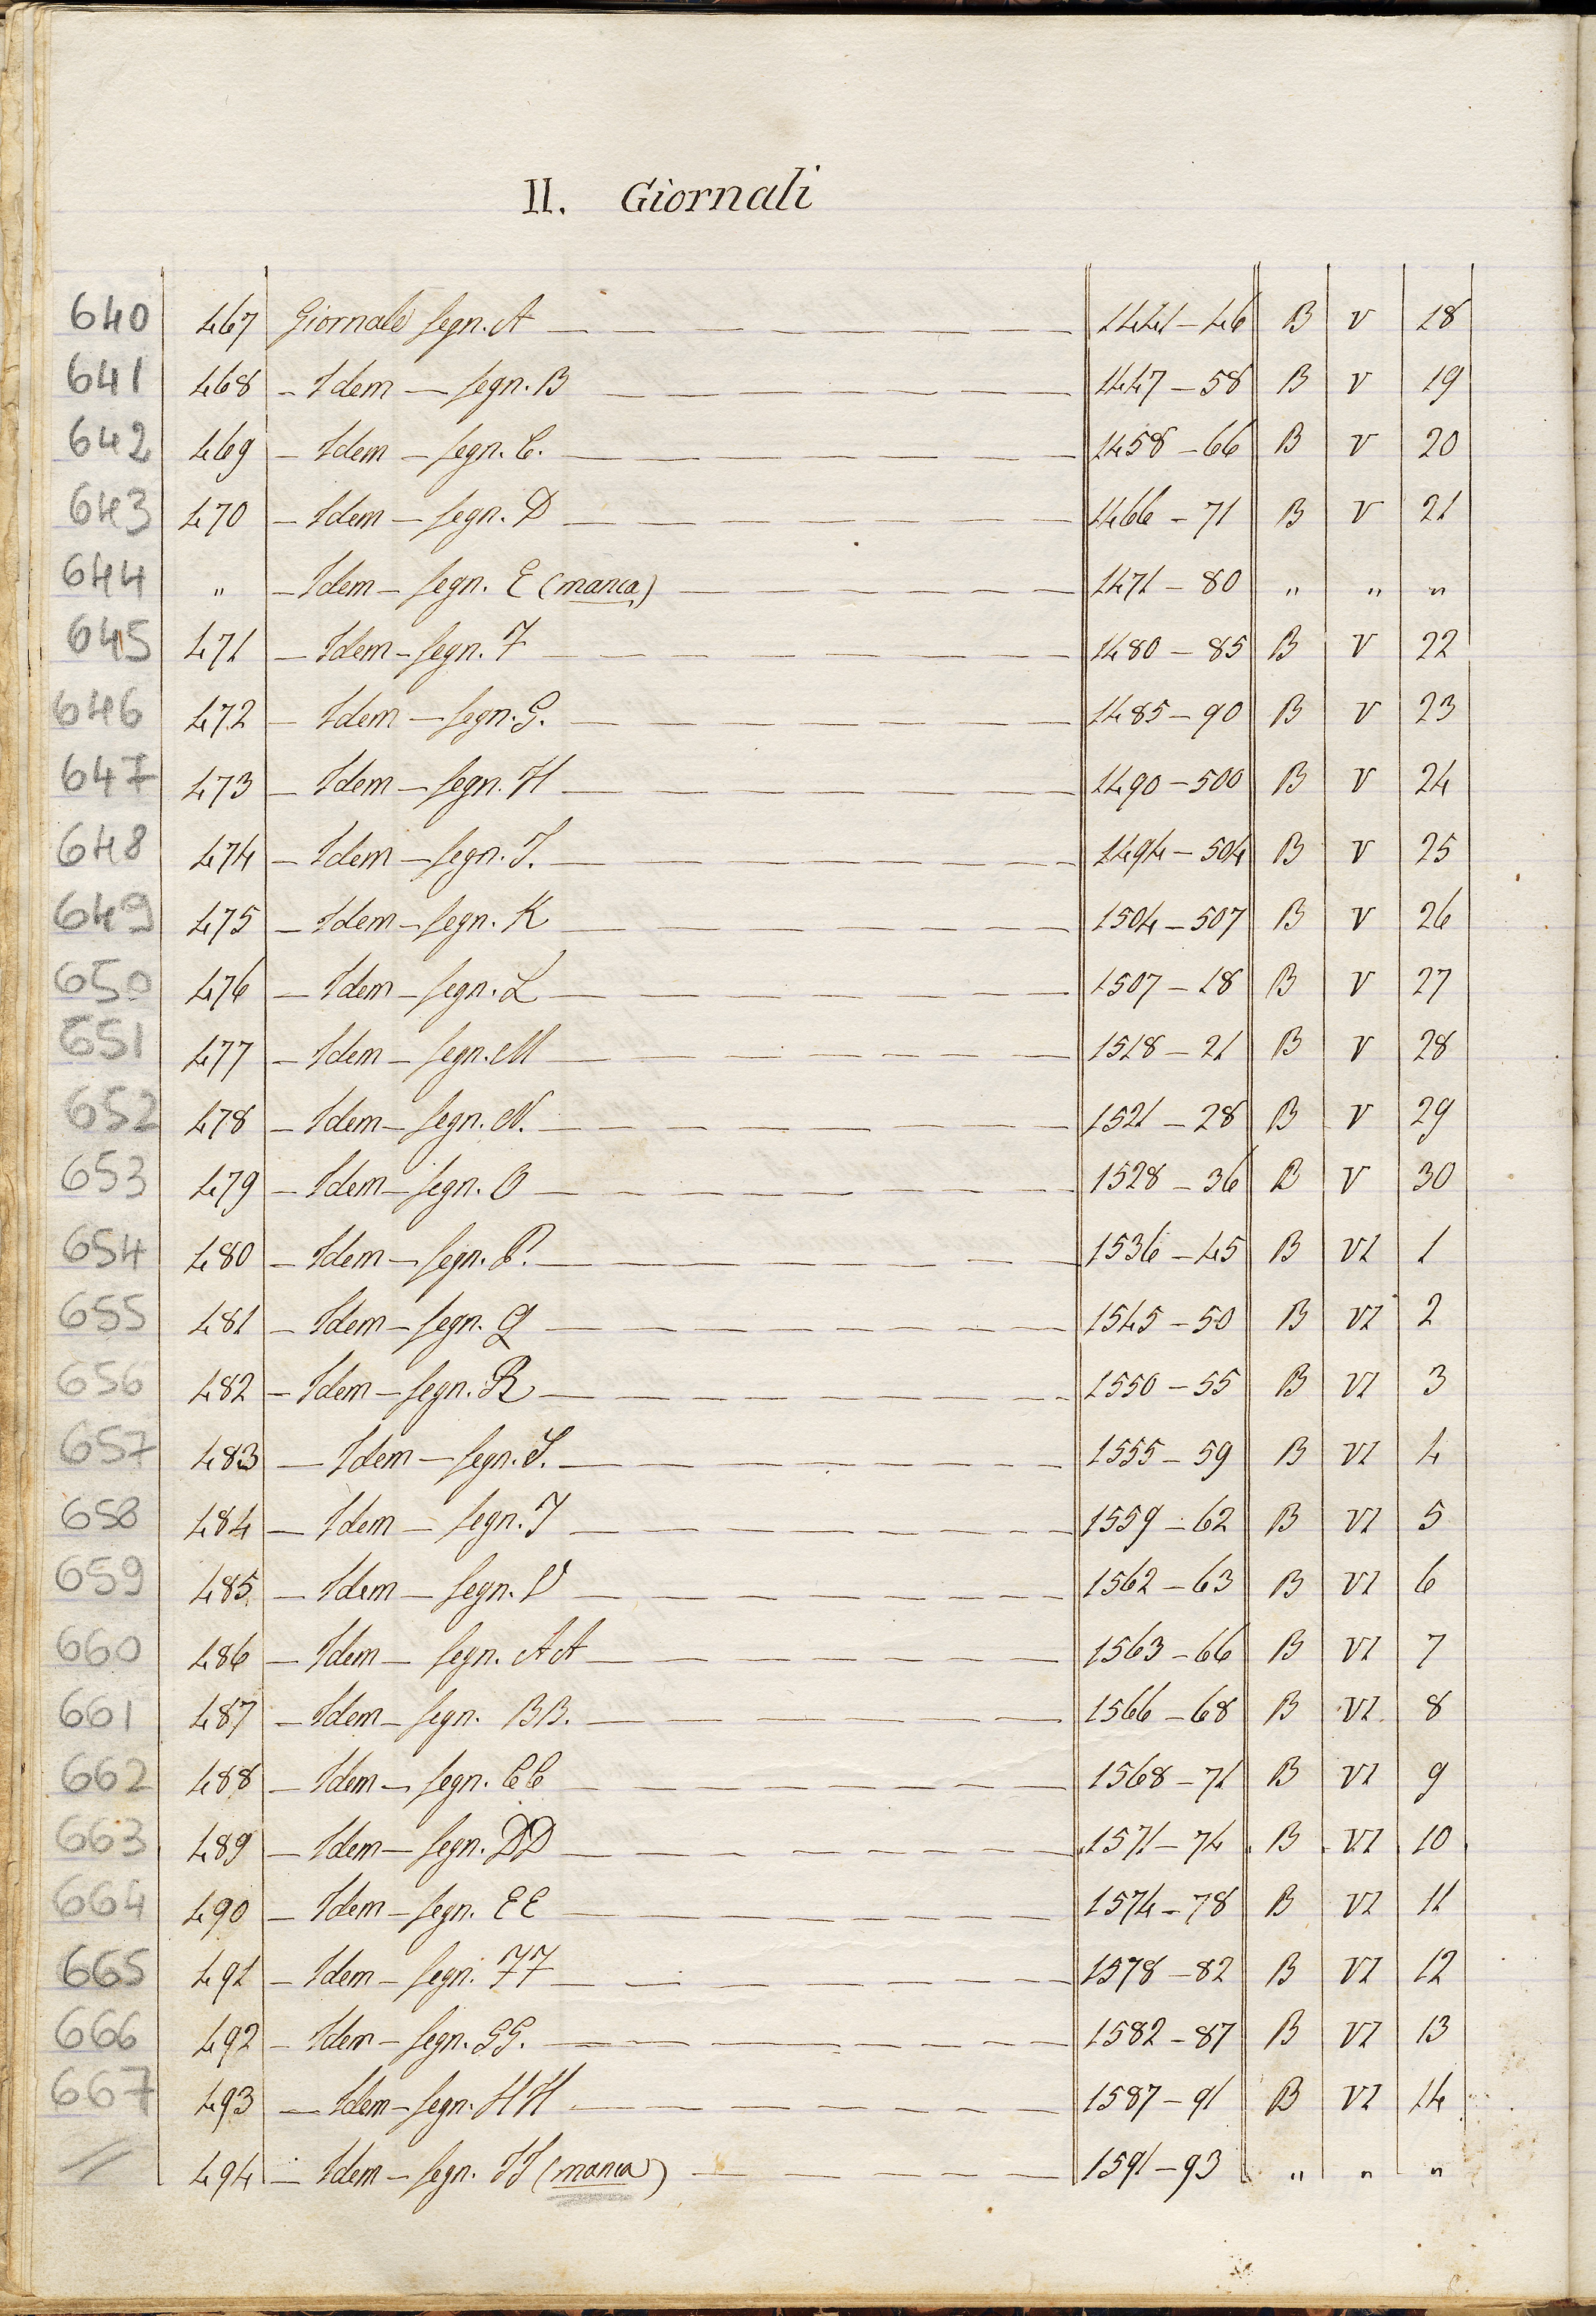 II. Giornali
640 467 Giornale segn. A — 1441 – 46 B V 18
641 468 – Idem – segn. B — 1447 – 58 B V 19
642 469 – Idem – segn. C. — 1458 – 66 B V 20
643 470 – Idem – segn. D — 1466 – 71 B V 21
644 " – Idem – segn. E (manca) — 1471 – 80 " " "
645 471 – Idem – segn. F — 1480 – 85 B V 22
646 472 – Idem – segn. G. — 1485 – 90 B V 23
647 473 – Idem – segn. H — 1490 – 500 B V 24
648 474 – Idem – segn. I. — 1494 – 504 B V 25
649 475 – Idem – segn. K — 1504 – 507 B V 26
650 476 – Idem – segn. L — 1507 – 18 B V 27
651 477 – Idem – segn. M — 1518 – 21 B V 28
652 478 – Idem – segn. N. — 1521 – 28 B V 29
653 479 – Idem – segn. O — 1528 – 36 B V 30
654 480 – Idem – segn. P. — 1536 – 45 B VI 1
655 481 – Idem – segn. Q — 1545 – 50 B VI 2
656 482 – Idem – segn. R — 1550 – 55 B VI 3
657 483 – Idem – segn. S. — 1555 – 59 B VI 4
658 484 – Idem – segn. T — 1559 – 62 B VI 5
659 485 – Idem – segn. V — 1562 – 63 B VI 6
660 486 – Idem – segn. AA — 1563 – 66 B VI 7
661 487 – Idem – segn. BB. — 1566 – 68 B VI 8
662 488 – Idem – segn. CC — 1568 – 71 B VI 9
663 489 – Idem – segn. DD — 1571 – 74 B VI 10
664 490 – Idem – segn. EE — 1574 – 78 B VI 11
665 491 – Idem – segn. FF — 1578 – 82 B VI 12
666 492 – Idem – segn. GG. — 1582 – 87 B VI 13
667 493 – Idem – segn. HH — 1587 – 91 B VI 14
// 494 – Idem – segn. II (manca) — 1591 – 93 " " "